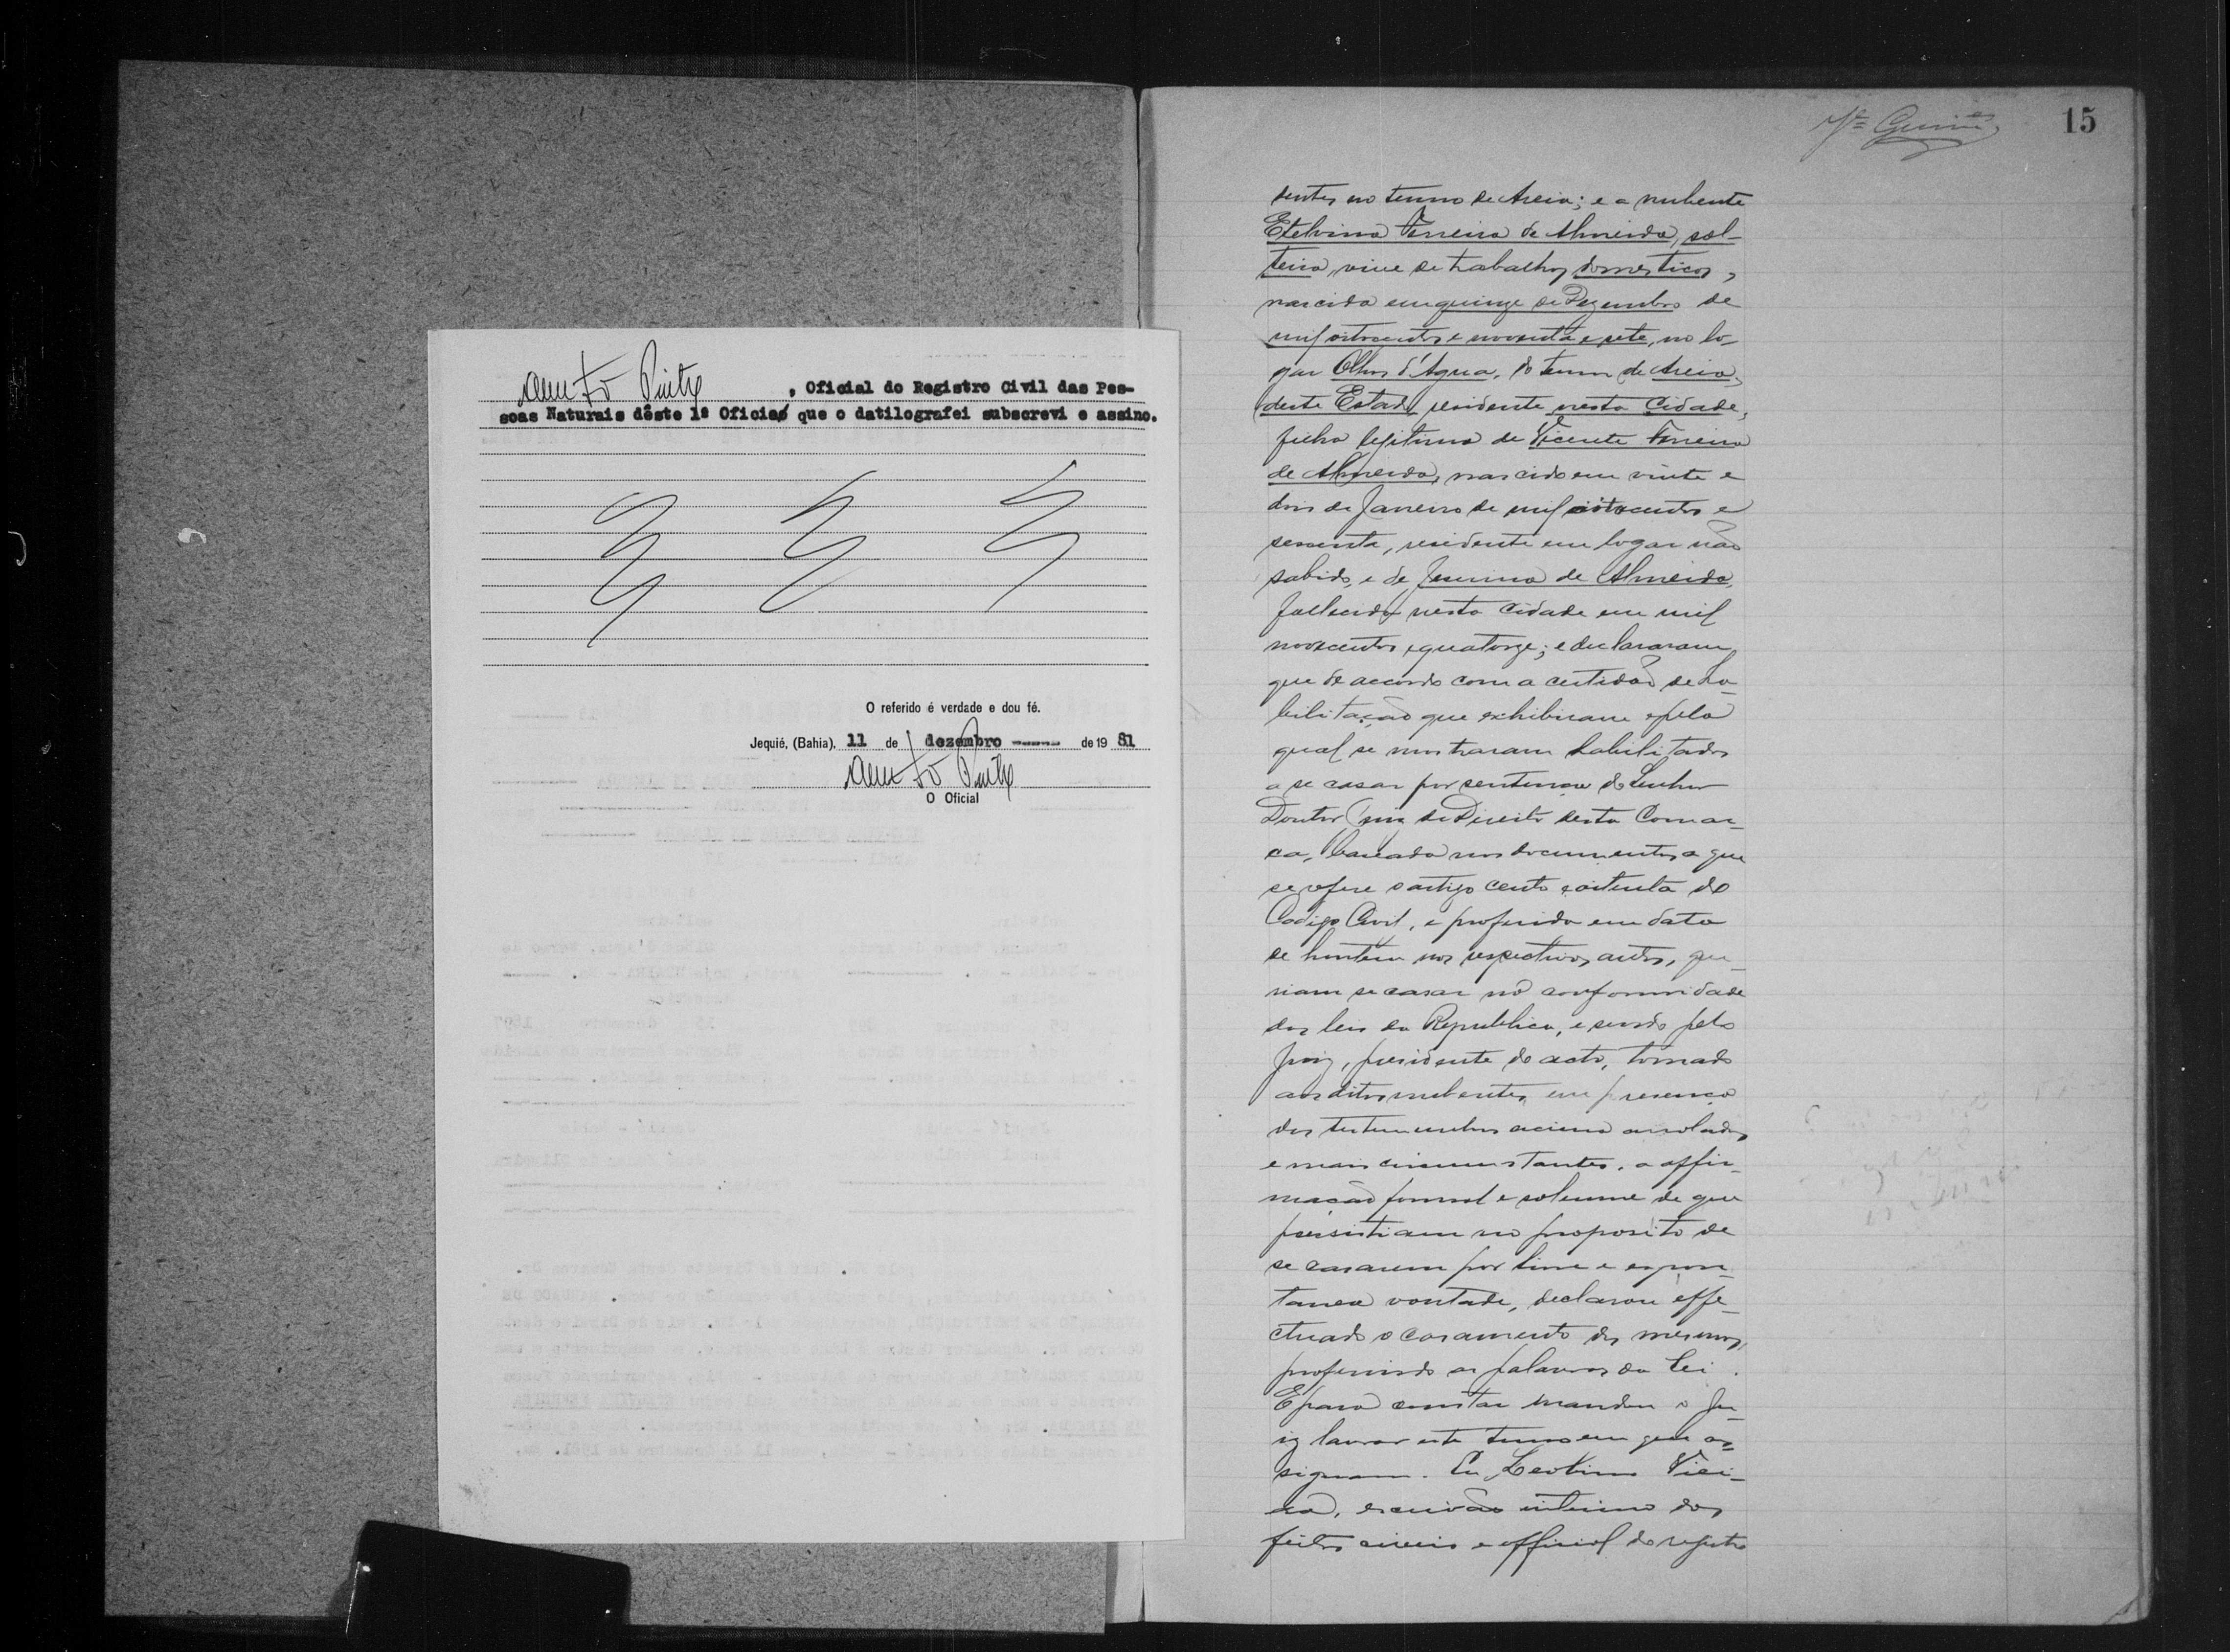 , Oficial do Registro Civil das Pes-
soas Naturais dêste 1º Oficio, que o datilografei subscrevi e assino.
O referido é verdade e dou fé.
Jequié, (Bahia), 11 de dezembro ----- de 19 81
O Oficial
15
dentes no termo de Areia; e a nubente
Etelvina Ferreira de Almeida, sol-
teira, vive de trabalhos domesticos,
nascida em quinze de Dezembro de
mil oitocentos e noventa e sete, no lo-
gar Olhos d'Agua, do termo de Areia,
deste Estado, residente nesta Cidade,
filha legitima de Vicente Ferreira
de Almeida, nascido em vinte e
dois de Janeiro de mil oitocentos e
sessenta, residente em logar não
sabido, e de Jesuina de Almeida,
fallecida nesta cidade em mil
novecentos e quatorze; e declararam
que de accordo com a certidão de ha-
bilitação que exhibiram e pela
qual se mostraram habilitados
a se casar por sentença do Senhor
Doutor Juiz de Direito desta Comar-
ca, baseada nos documentos a que
se refere o artigo cento e oitenta do
Codigo Civil, e proferida em data
de hontem nos respectivos autos, que-
riam se casar na conformidade
das leis da Republica, e sendo pelo
Juiz, presidente do acto, tomado
aos ditos nubentes, em presença
das testemunhas acima arroladas
e mais circumstantes, a affir-
mação formal e solemne de que
persistiam no proposito de
se casarem por livre e espon-
tanea vontade, declarou effe-
ctuado o casamento dos mesmos,
proferindo as palavras da lei.
E para constar mandou o Ju-
iz lavrar este termo em que as-
signam. Eu Leobino Viei-
ra, escrivão interino dos
feitos civeis e official do registro